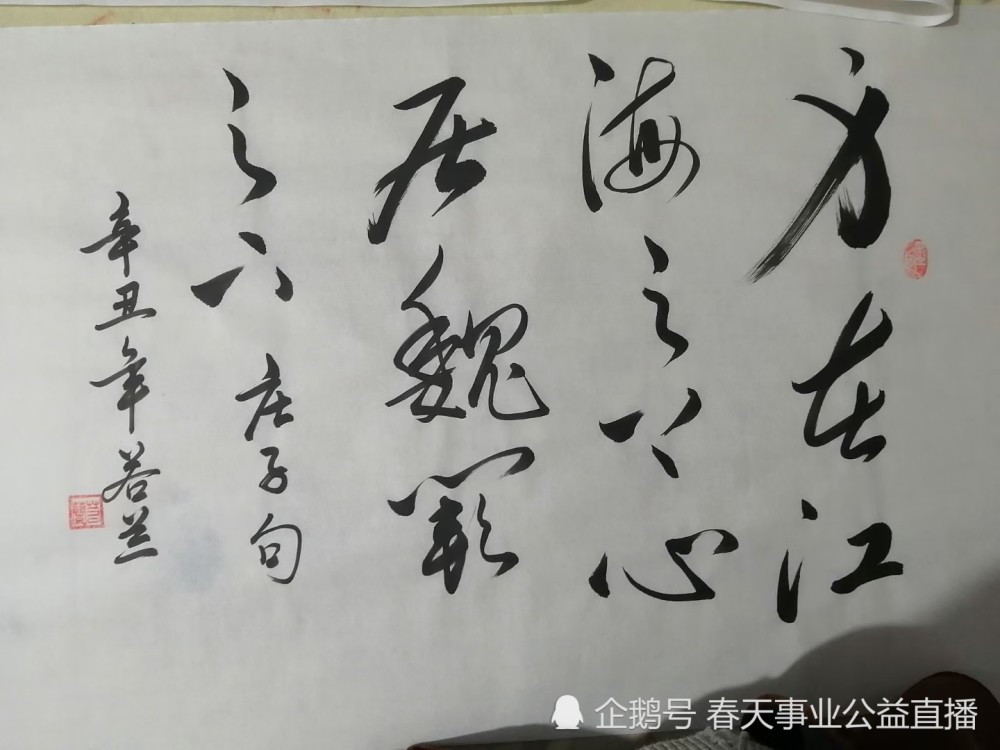 身在江
海之上心
居魏阙
之下 庄子句
辛丑年若兰
企鹅号 春天事业公益直播